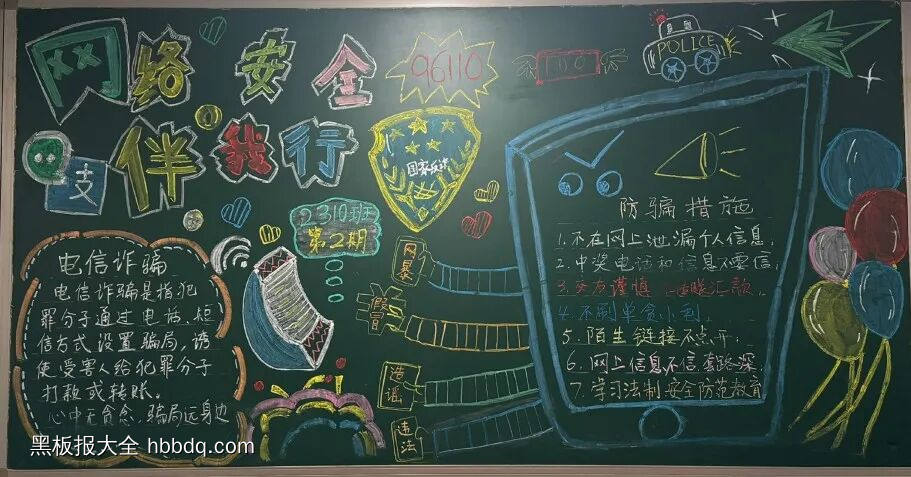 网络安全
伴我行
支
96110
110
POLICE
国家反诈
310班
第2期
电信诈骗
电信诈骗是指犯
罪分子通过电话、短
信方式设置骗局,诱
使受害人给犯罪分子
打款或转账。
心中无贪念,骗局远身边
网暴
假冒
造谣
违法
防骗措施
1.不在网上泄漏个人信息,
2.中奖电话和信息不要信,
3.交友谨慎 汇款,
4.不刷单贪小利,
5.陌生链接不点开,
6.网上信息不信套路深,
7.学习法制安全防范教育
黑板报大全 hbbdq.com